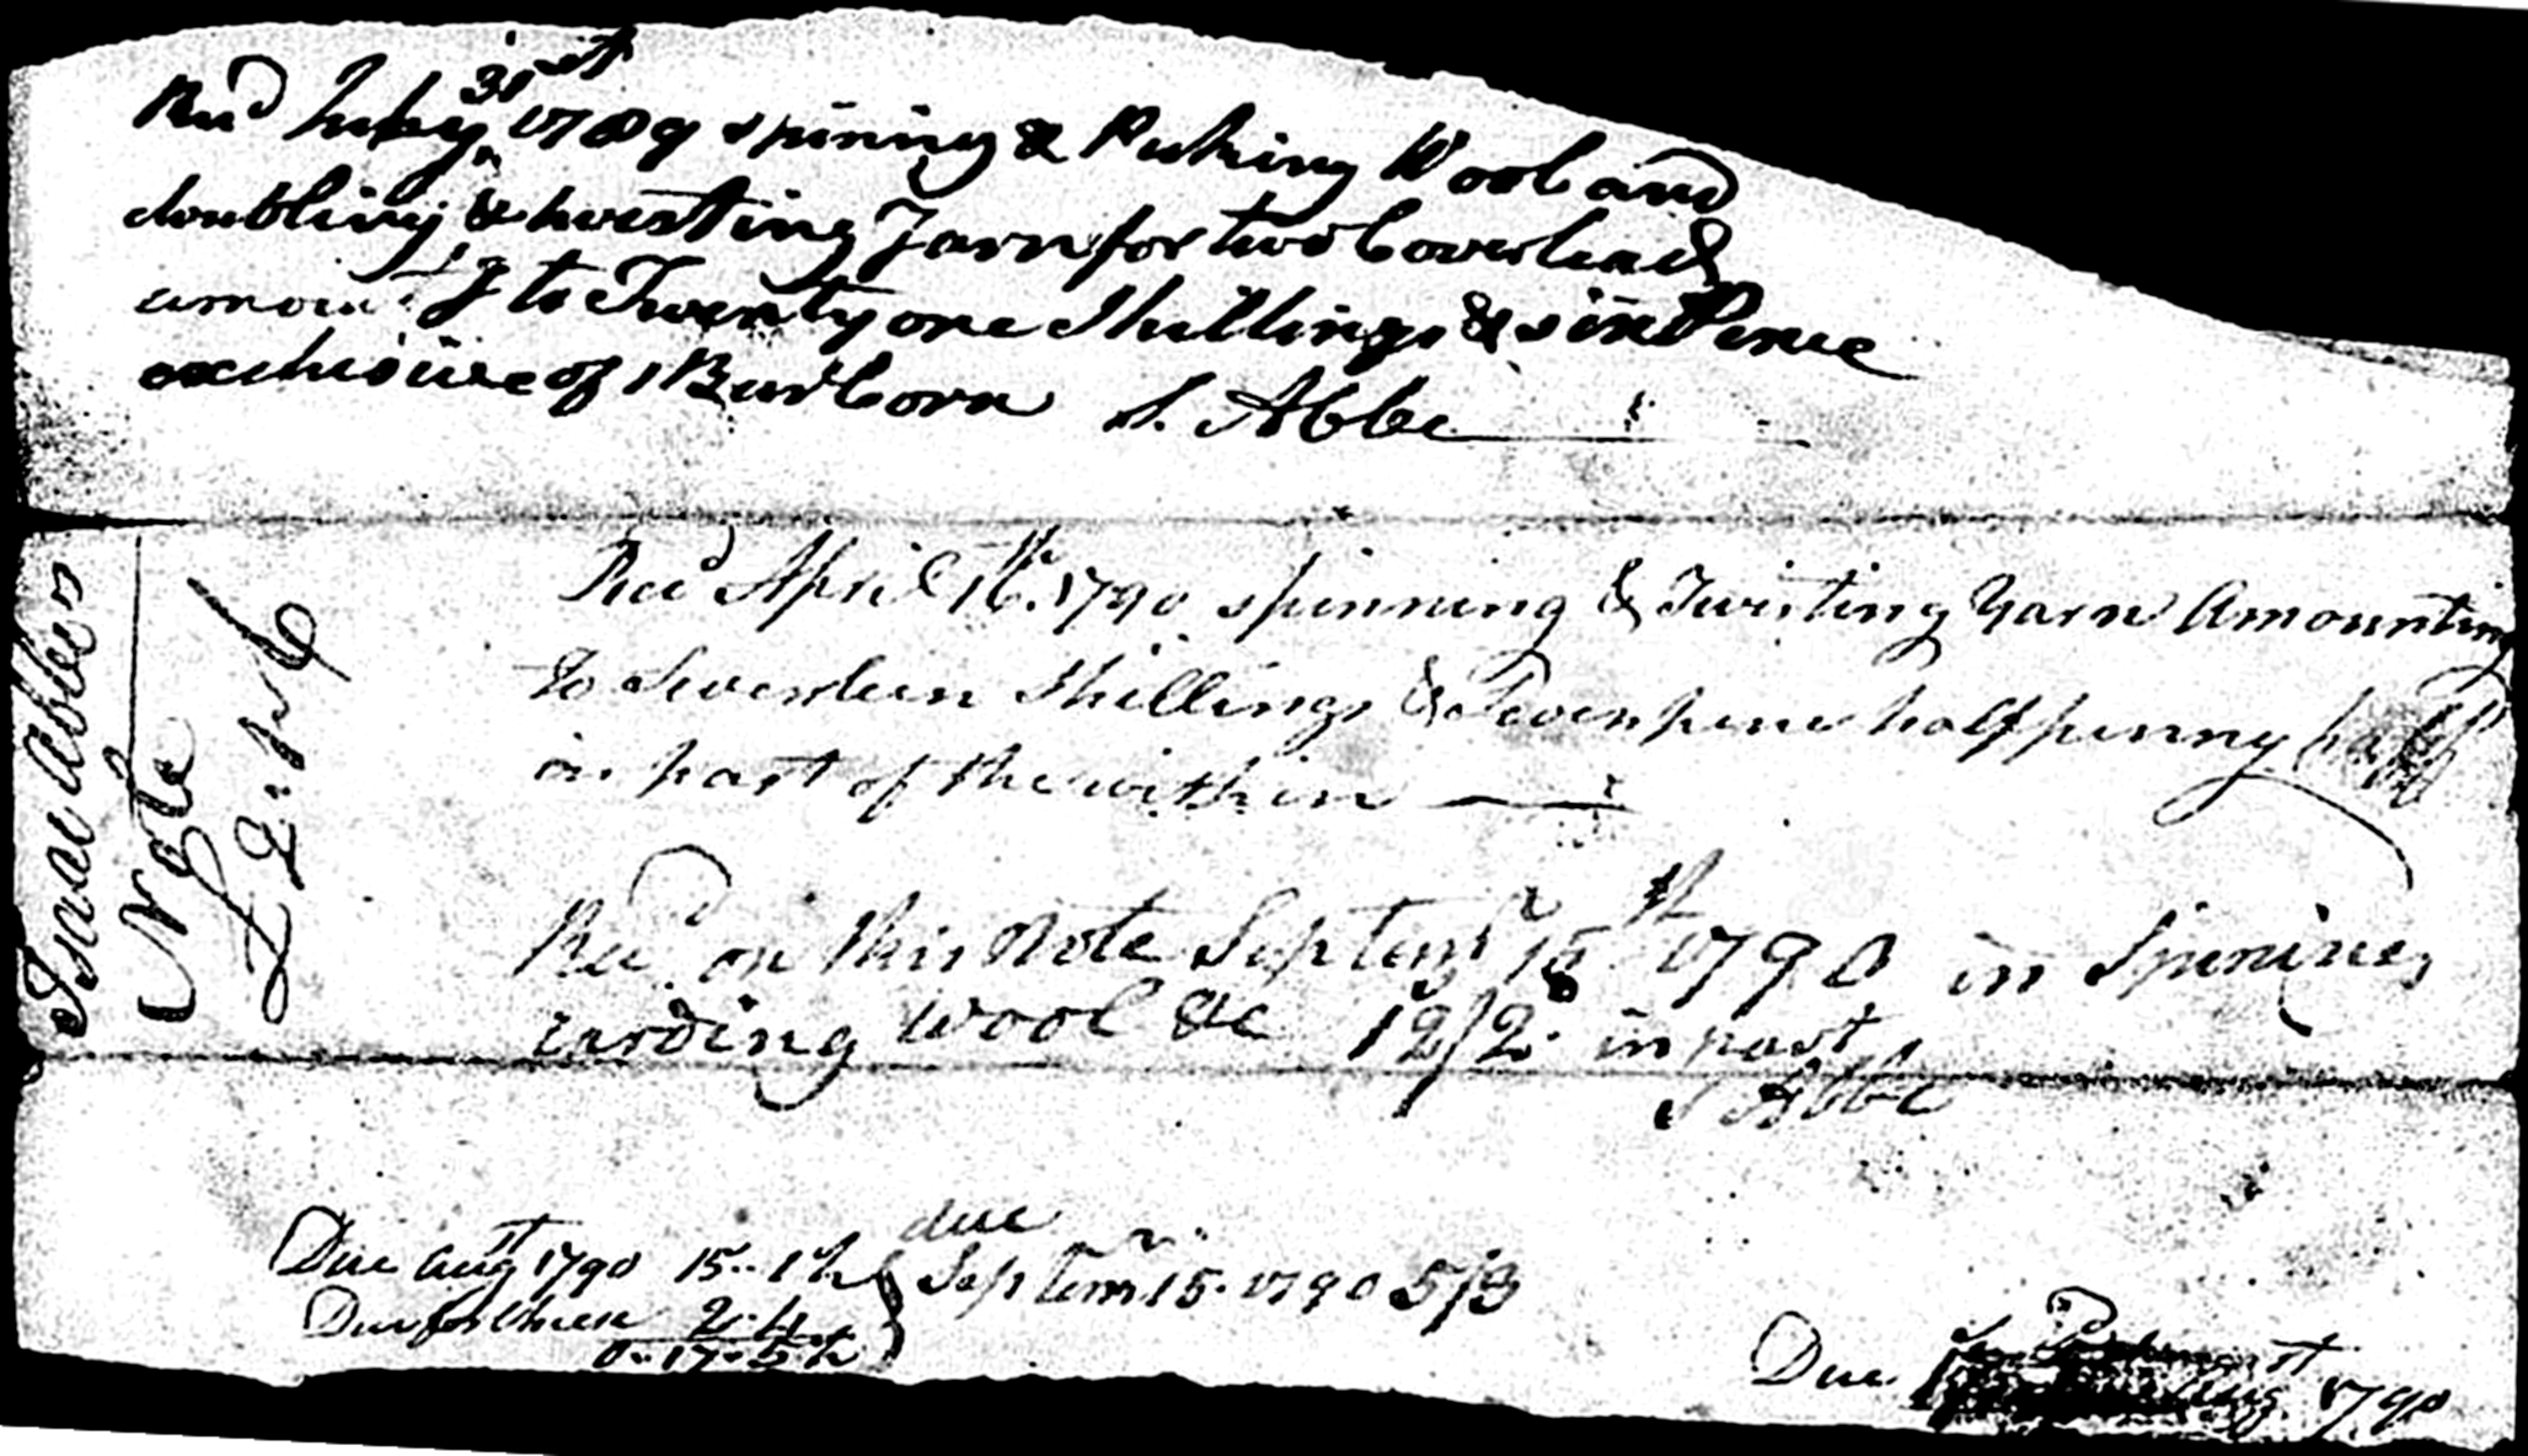 Recd July 31st 1789 spining & Picking Wool and
doubling & twisting Yarn for two Coverleads
amounting to Twenty one Shillings & six Pence
exclusive of 1 Bus Corn S. Abbe
Recd April 16th 1790 spinning & Twisting Yarn Amounting
to Seventeen Shillings & Sevenpence halfpenny
in part of the within
Recd on this Note Septemr 15th 1790 in Spining
carding wool &c 12/2 in part
S Abbe
Isaac Abbees
Note
£2.
Due augst 1790 15..1½
Due for Cheese 2..4
0..17..5½
due
Septemr 15. 1790 5/3
Due
Augst 1790